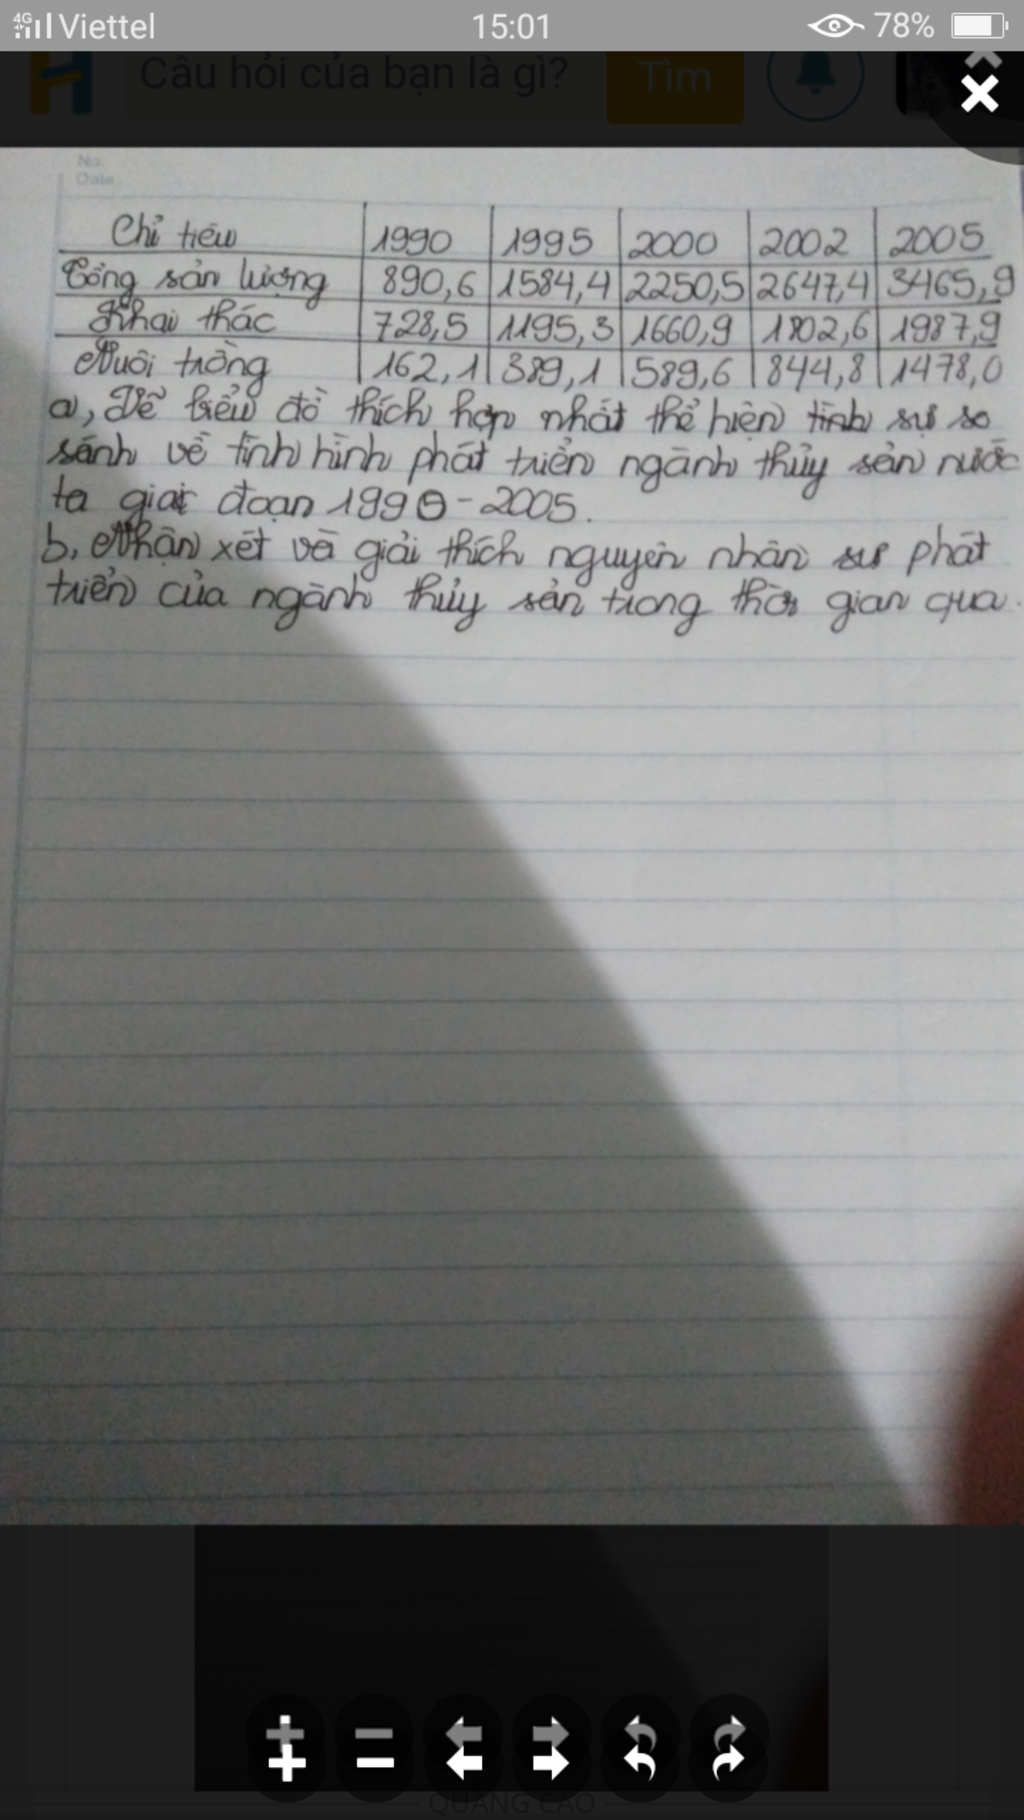 4G Viettel 15:01 78%
Câu hỏi của bạn là gì? Tìm
No.
Date
Chỉ tiêu 1990 1995 2000 2002 2005
Tổng sản lượng 890,6 1584,4 2250,5 2647,4 3465,9
Khai thác 728,5 1195,3 1660,9 1802,6 1987,9
Nuôi trồng 162,1 389,1 589,6 844,8 1478,0
a, Vẽ biểu đồ thích hợp nhất thể hiện tình sự so
sánh về tình hình phát triển ngành thủy sản nước
ta giai đoạn 1990-2005.
b, Nhận xét và giải thích nguyên nhân sự phát
triển của ngành thủy sản trong thời gian qua.
QUẢNG CÁO